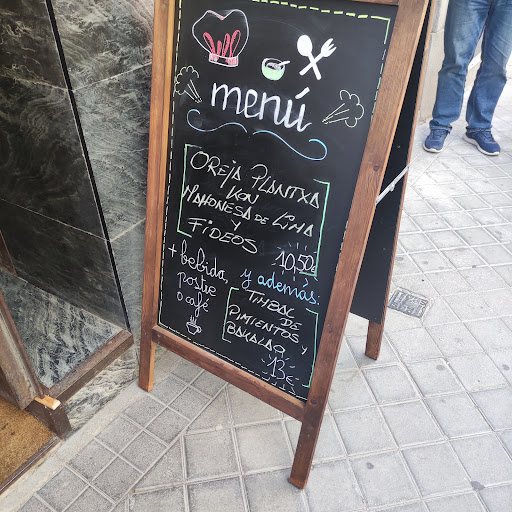 menú
OREJA PLANTXA
KON
MAHONESA DE LIMA
Y
FIDEOS
10,50€
+ bebida,
postre
o café
y además:
TIMBAL
DE
PIMIENTOS Y
BAKALAO
13€